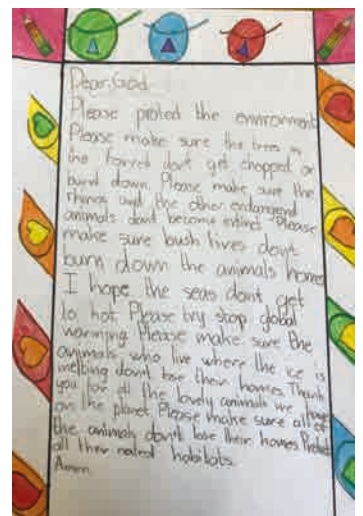 Dear God
Please protect the environment
Please make sure the trees in
the forest don't get chopped or
burnd down. Please make sure the
rhinos and the other endangered
animals dont become extinct Please
make sure bush fires dont
burn down the animals homes
I hope the seas don't get
to hot Please try stop global
warming Please make sure the
animals who live where the ice is
melting don't lose their homes Thank
you for all the lovely animals we have
on the planet Please make sure all of
the animals don't lose their homes Protect
all their natral habitats
Amen